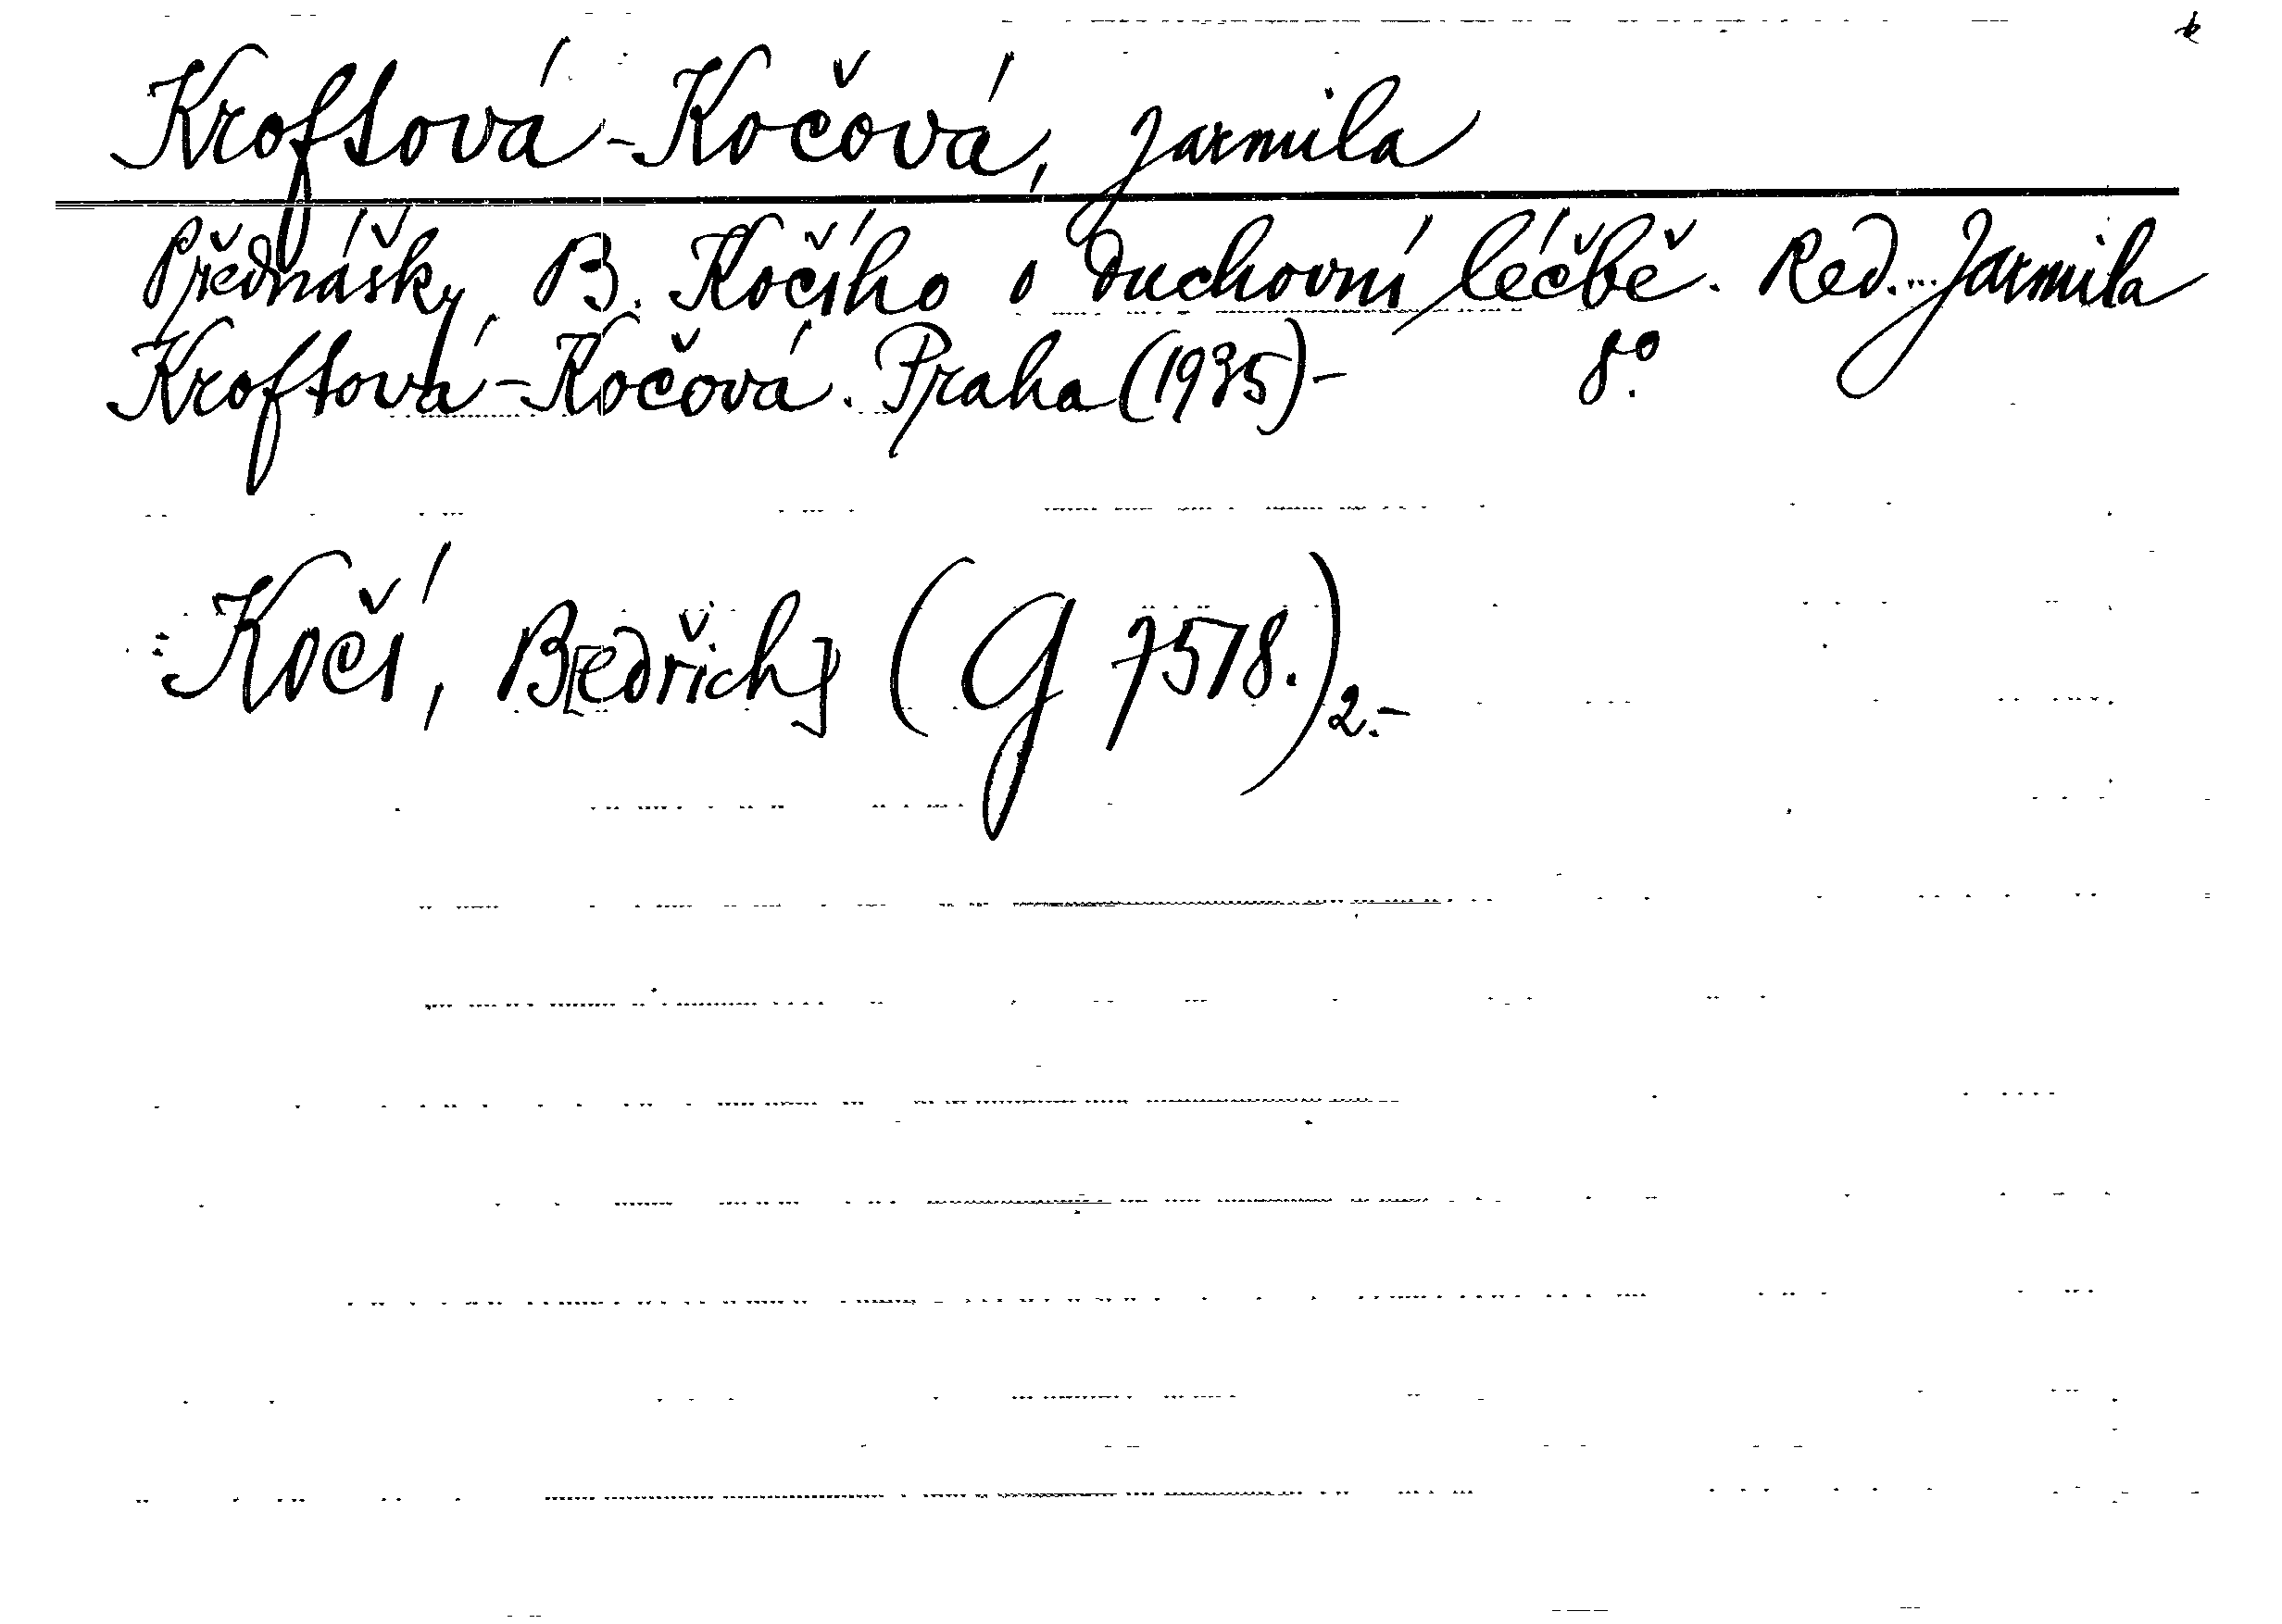 Kroftová-Kočová, Jarmila
Přednášky B. Kočího o duchovní léčbě. Red... Jarmila
Kroftová-Kočová. Praha (1935)- 8º.
Kočí, B[edřich] (G 7518.) 2.-